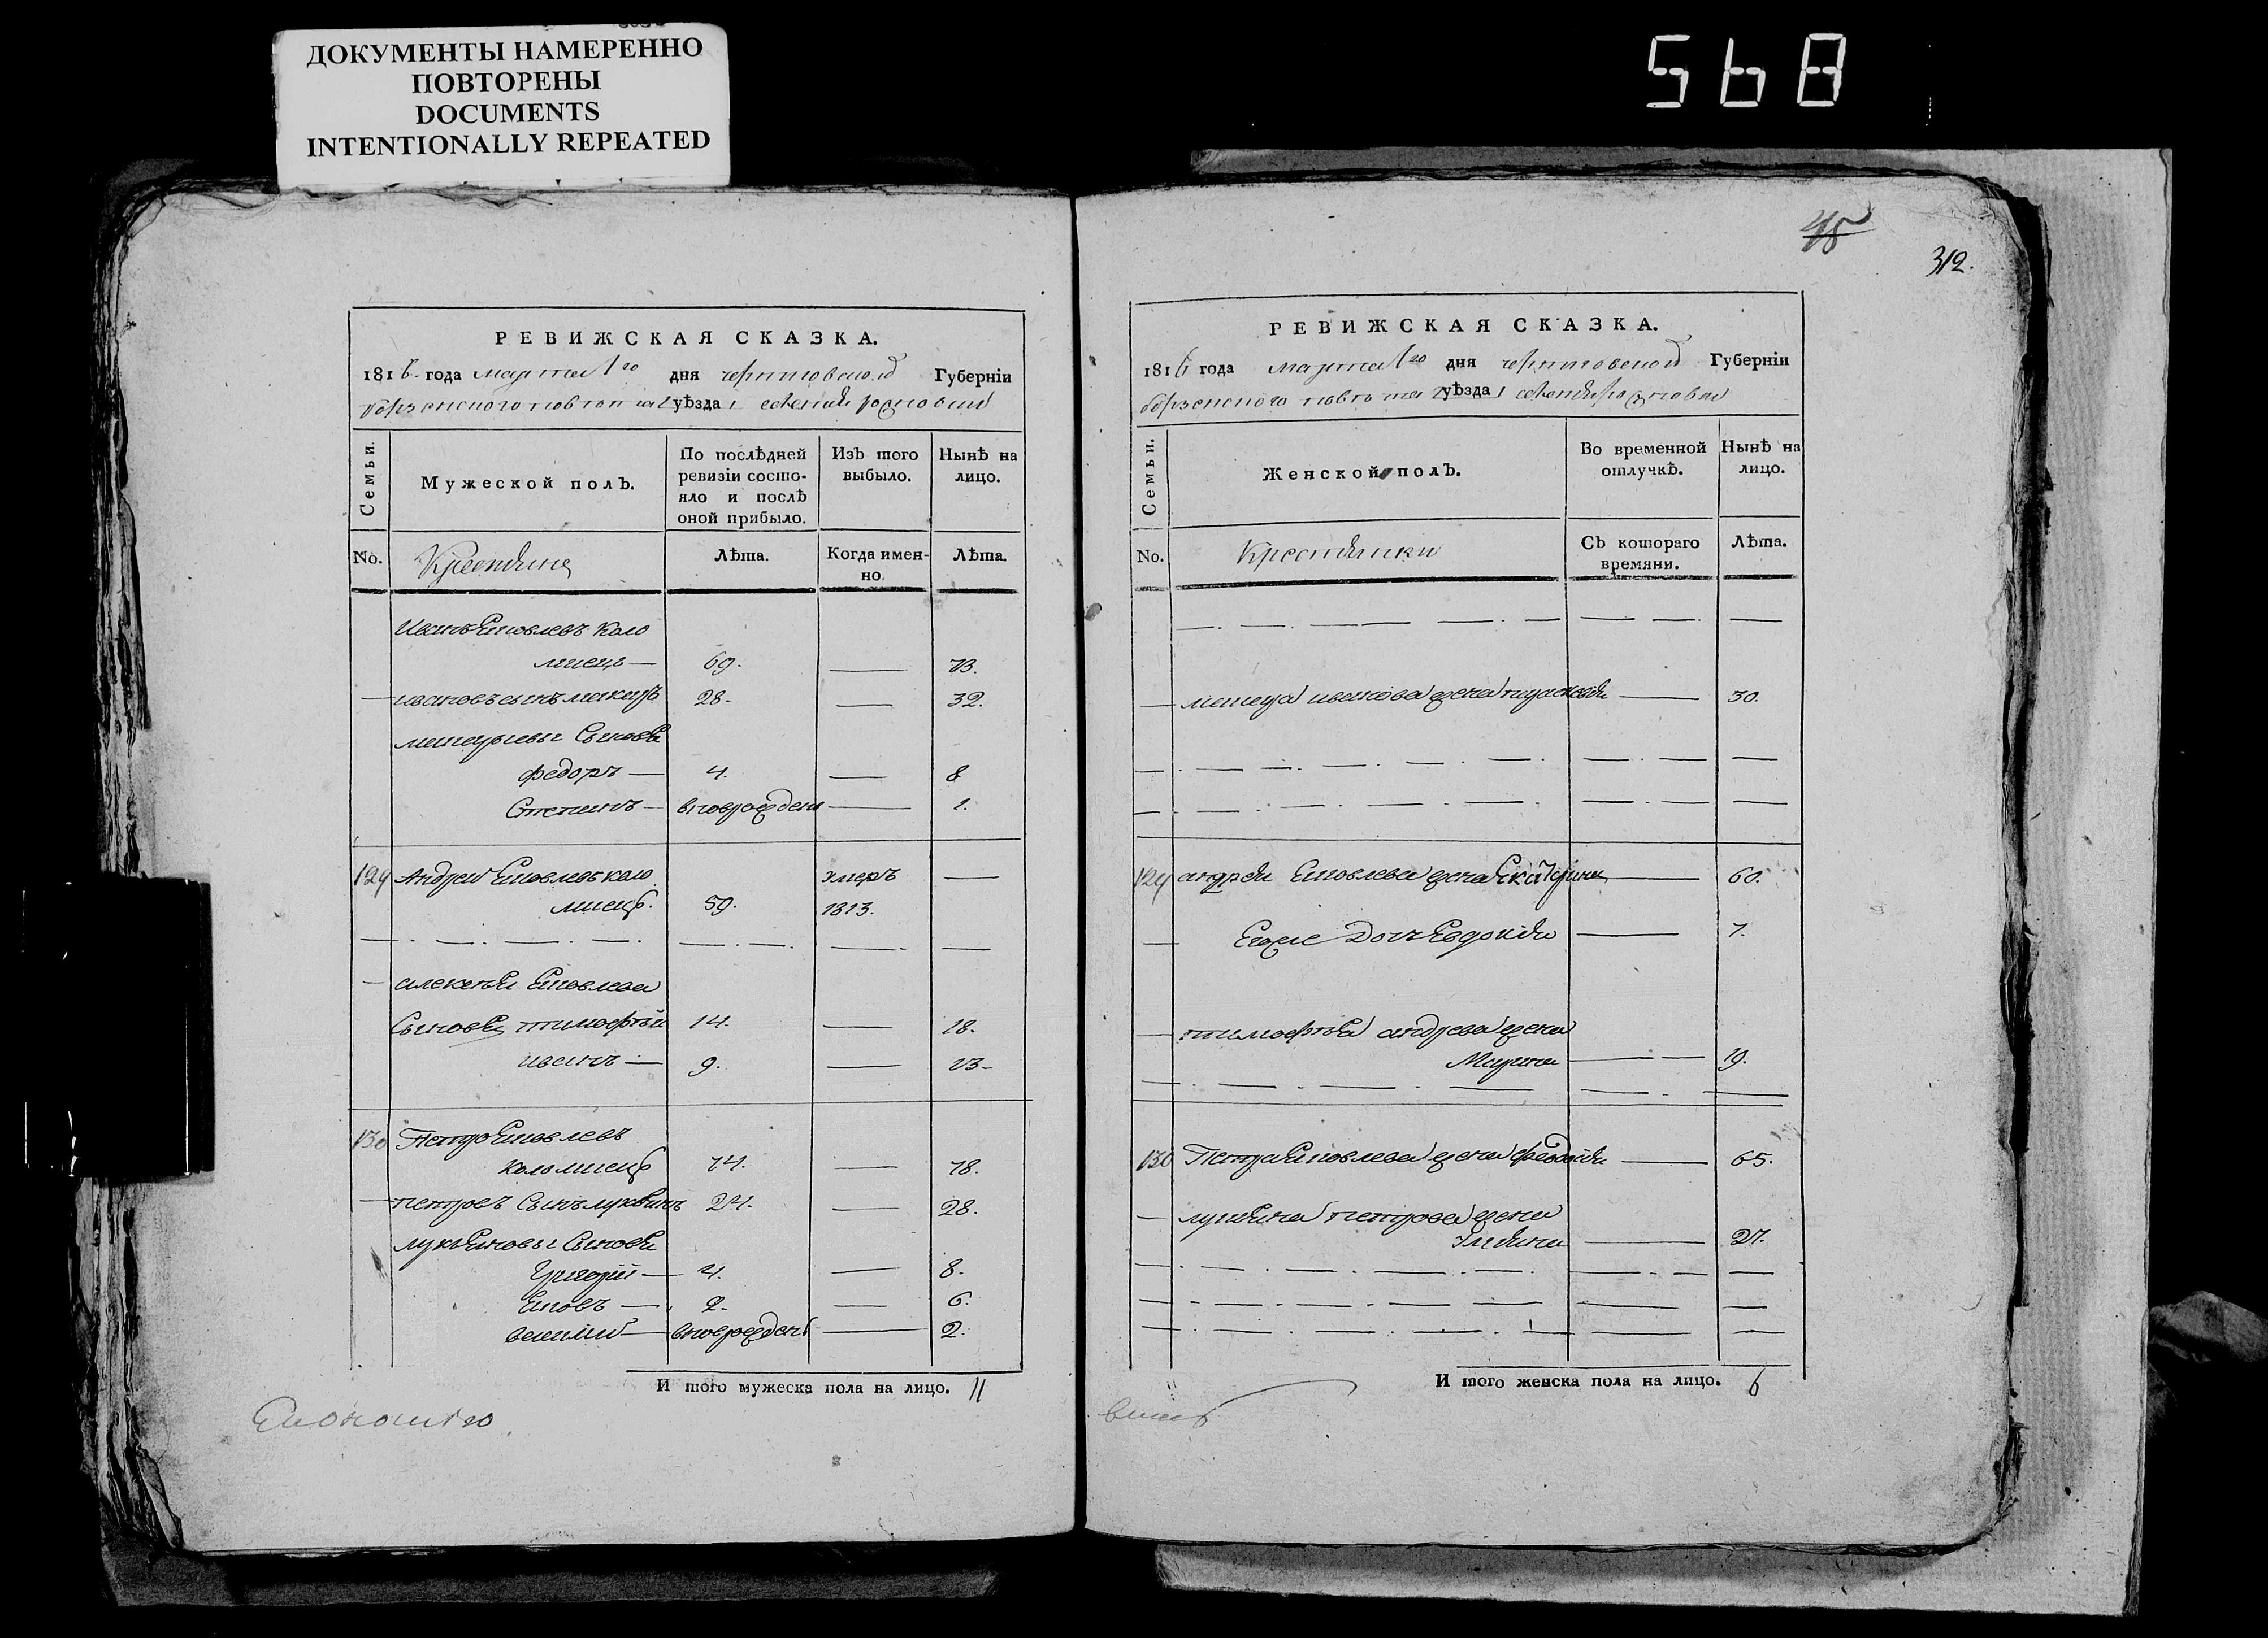 ДОКУМЕНТЫ НАМЕРЕННО
ПОВТОРЕНЫ
DOCUMENTS
INTENTIONALLY REPEATED
568
РЕВИЖСКАЯ СКАЗКА.
1816 года марта 1го дня черниговской Губерніи
борзенского повета уѣзда
Семьи.
Мужеской полЪ.
По послѣдней
ревизіи состо-
яло и послѣ
оной прибыло.
ИзЪ того
выбыло.
НынѢ на
лицо.
No.
Крестьяне
Лѣта.
Когда имен-
но.
Лѣта.
Иванъ Яковлевъ Коло
миецъ — 69. — 73.
— ивановъ сынъ макаръ 28. — 32.
макаровы Сыновья
федоръ — 4. — 8
Степанъ — вноврожденъ — 1.
129 Андрей Яковлевъ коло умеръ —
миецъ. 59. 1813.
— Яковлева
Сыновья тимофѣй 14. — 18.
иванъ — 9. — 13.
130 Петръ Яковлевъ
коломиецъ 74. — 78.
— петровъ Сынъ лукьянъ 24. — 28.
лукьяновы Сыновья
Григорій — 4. — 8.
Яковъ — 2. — 6.
— вноврожденъ — 2.
И того мужеска пола на лицо. 11
45
312.
РЕВИЖСКАЯ СКАЗКА.
1816 года марта 1го дня черниговской Губерніи
борзенского повета уѣзда
Семьи.
Женской полЪ.
Во временной
отлучкѢ.
НынѢ на
лицо.
No.
Крестьянки
СЪ котораго
времяни.
Лѣта.
— макара иванова жена — 30.
129 андрея Яковлева жена Екатерина — 60.
— Егоже Дочь Евдокия — 7.
— тимофѣя андреева жена
Марина — 19.
130 Петра Яковлева жена феодосия — 65.
— лукьяна петрова жена
Ульяна — 27.
И того женска пола на лицо. 6